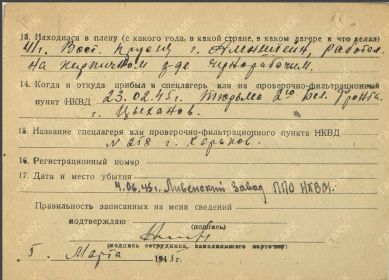 13. Находился в плену (с какого года, в какой стране, в каком лагере и что делал)
41г. Вост. Пруссия г. Алленштейн, работал
на кирпичном з-де чернорабочим.
14. Когда и откуда прибыл в спецлагерь или на проверочно-фильтрационный
пункт НКВД 23.02.45г. Тюрьма 2го Бел. Фронта
г. Цыханов.
15. Название спецлагеря или проверочно-фильтрационного пункта НКВД
№ 258 г. Харьков.
16. Регистрационный номер
17. Дата и место убытия
4.06.45г. Ливенский завод ППО НКВД.
Правильность записанных на меня сведений
подтверждаю
(подпись)
(подпись сотрудника, заполнявшего карточку)
5. Марта 1945 г.